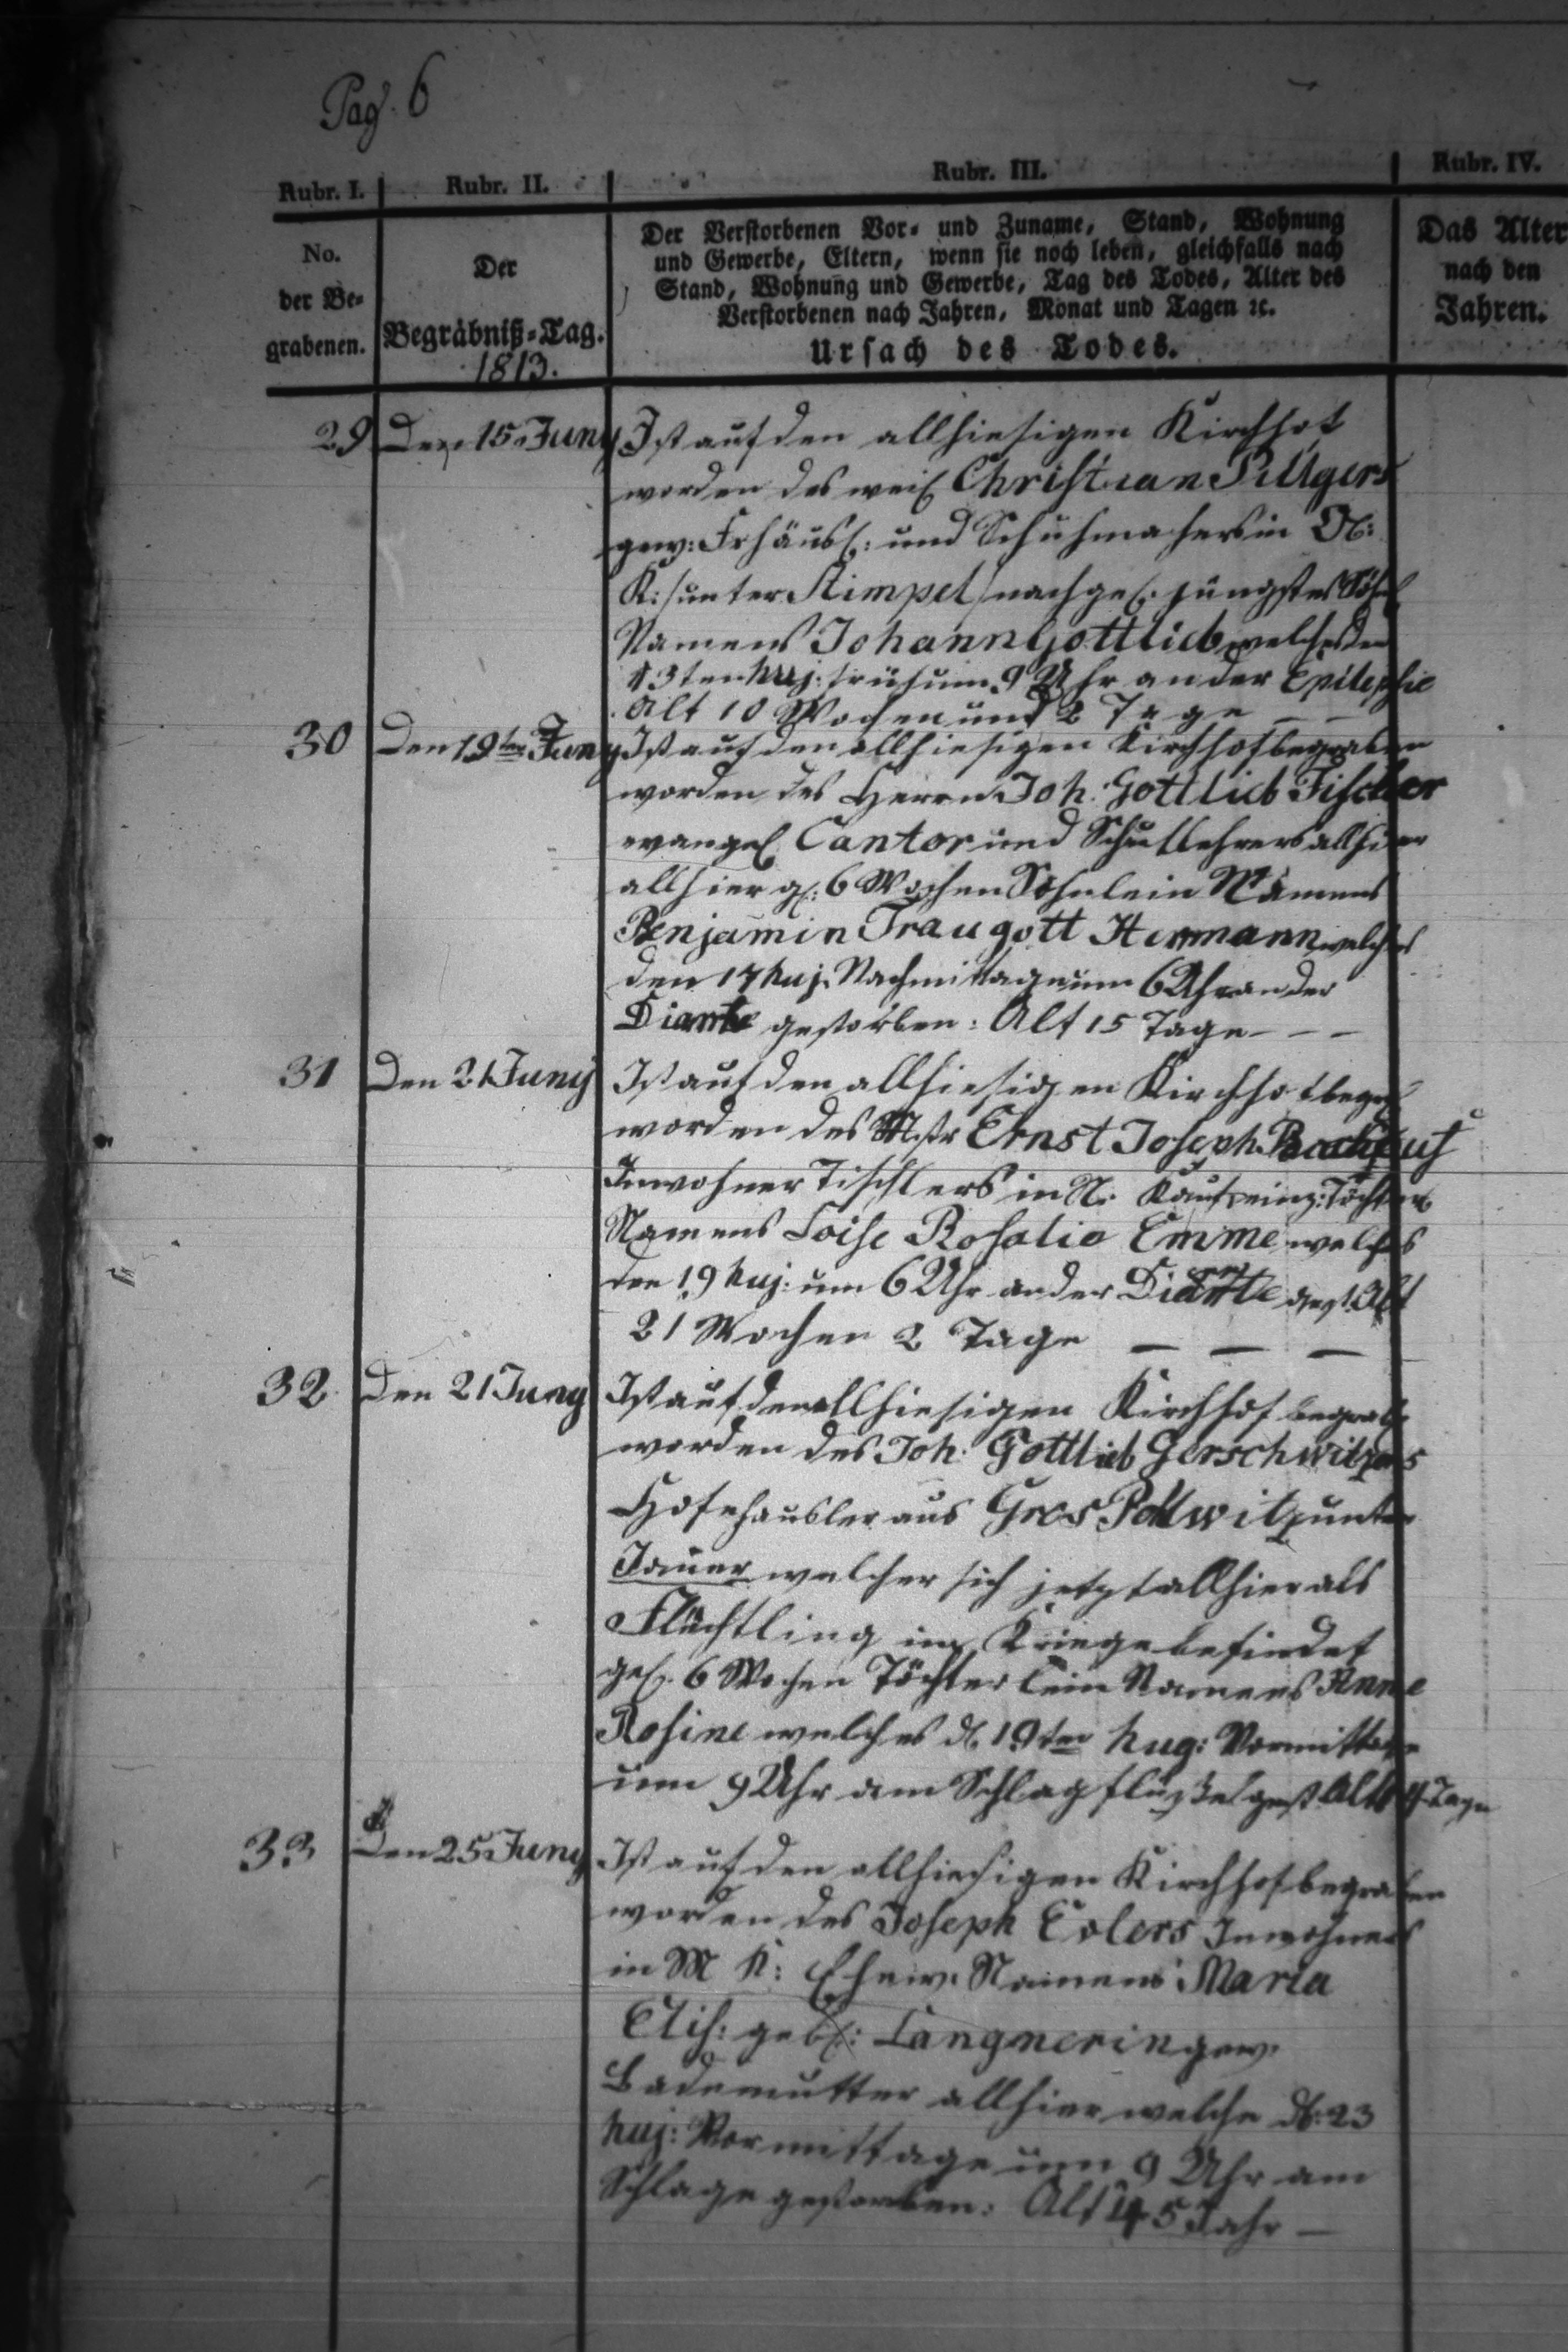 Pag. 6
Rubr. I. Rubr. II. Rubr. III. Rubr. IV.
No.
der Be-
grabenen.
Der
Begräbniß-Tag.
1813.
Der Verstorbenen Vor- und Zuname, Stand, Wohnung
und Gewerbe, Eltern, wenn sie noch leben, gleichfalls nach
Stand, Wohnung und Gewerbe, Tag des Todes, Alter des
Verstorbenen nach Jahren, Monat und Tagen ꝛc.
Ursach des Todes.
Das Alter
nach den
Jahren.
29 Den 15. Juny Ist auf den allhiesigen Kirchhof
worden des weil Christian
gew: Frhäusl: und Schuhmachers in
K: /unter Stimpel/ nachgel: jüngstes
Namens Johann Gottlieb welches den
13ten huj: früh um 9 Uhr an der Epilepsie
Alt 10 Wochen und 2 Tage _ _
30 Den 19ten Juny Ist auf den allhiesigen Kirchhof begraben
worden des Herrn Joh. Gottlieb Fischer
evangel Cantor und Schullehrers allhier
allhier gl: 6 Wochen Söhnlein Namens
Benjamin Traugott Hermann welches
den 17 huj. Nachmittage um 6 Uhr an der
gestorben: Alt 15 Tage - - -
31 Den 21 Juny Ist auf den allhiesigen Kirchhof begr
worden des Mstr Ernst Joseph
Inwohner Tischlers in N: Kauf: einz: Töchter
Namens Loise Rosalie Emme welches
den 19 huj: um 6 Uhr an der gest. Alt
21 Wochen 2 Tage _ _ _
32 Den 21 Juny Ist auf den allhiesigen Kirchhof begrab
worden des Joh: Gottlieb Gerschwitzens
Hofehäusler aus Gros unter
Jauer welcher sich jetzt allhier als
Flüchtling im Kriege befindet
gel. 6 Wochen Töchterlein Namens Anne
Rosine welches d. 19ten hug: Vormittage
um 9 Uhr am Schlagflusse gest. Alt Tage
33 Den 25. Juny Ist auf den allhiesigen Kirchhof begraben
worden des Joseph Inwohners
in M K: Ehew: Namens Maria
Elis: geb: Langnerin gew:
Bademutter allhier welche d: 23
huj: Vormittage um 9 Uhr am
Schlage gestorben: Alt 45 Jahr —